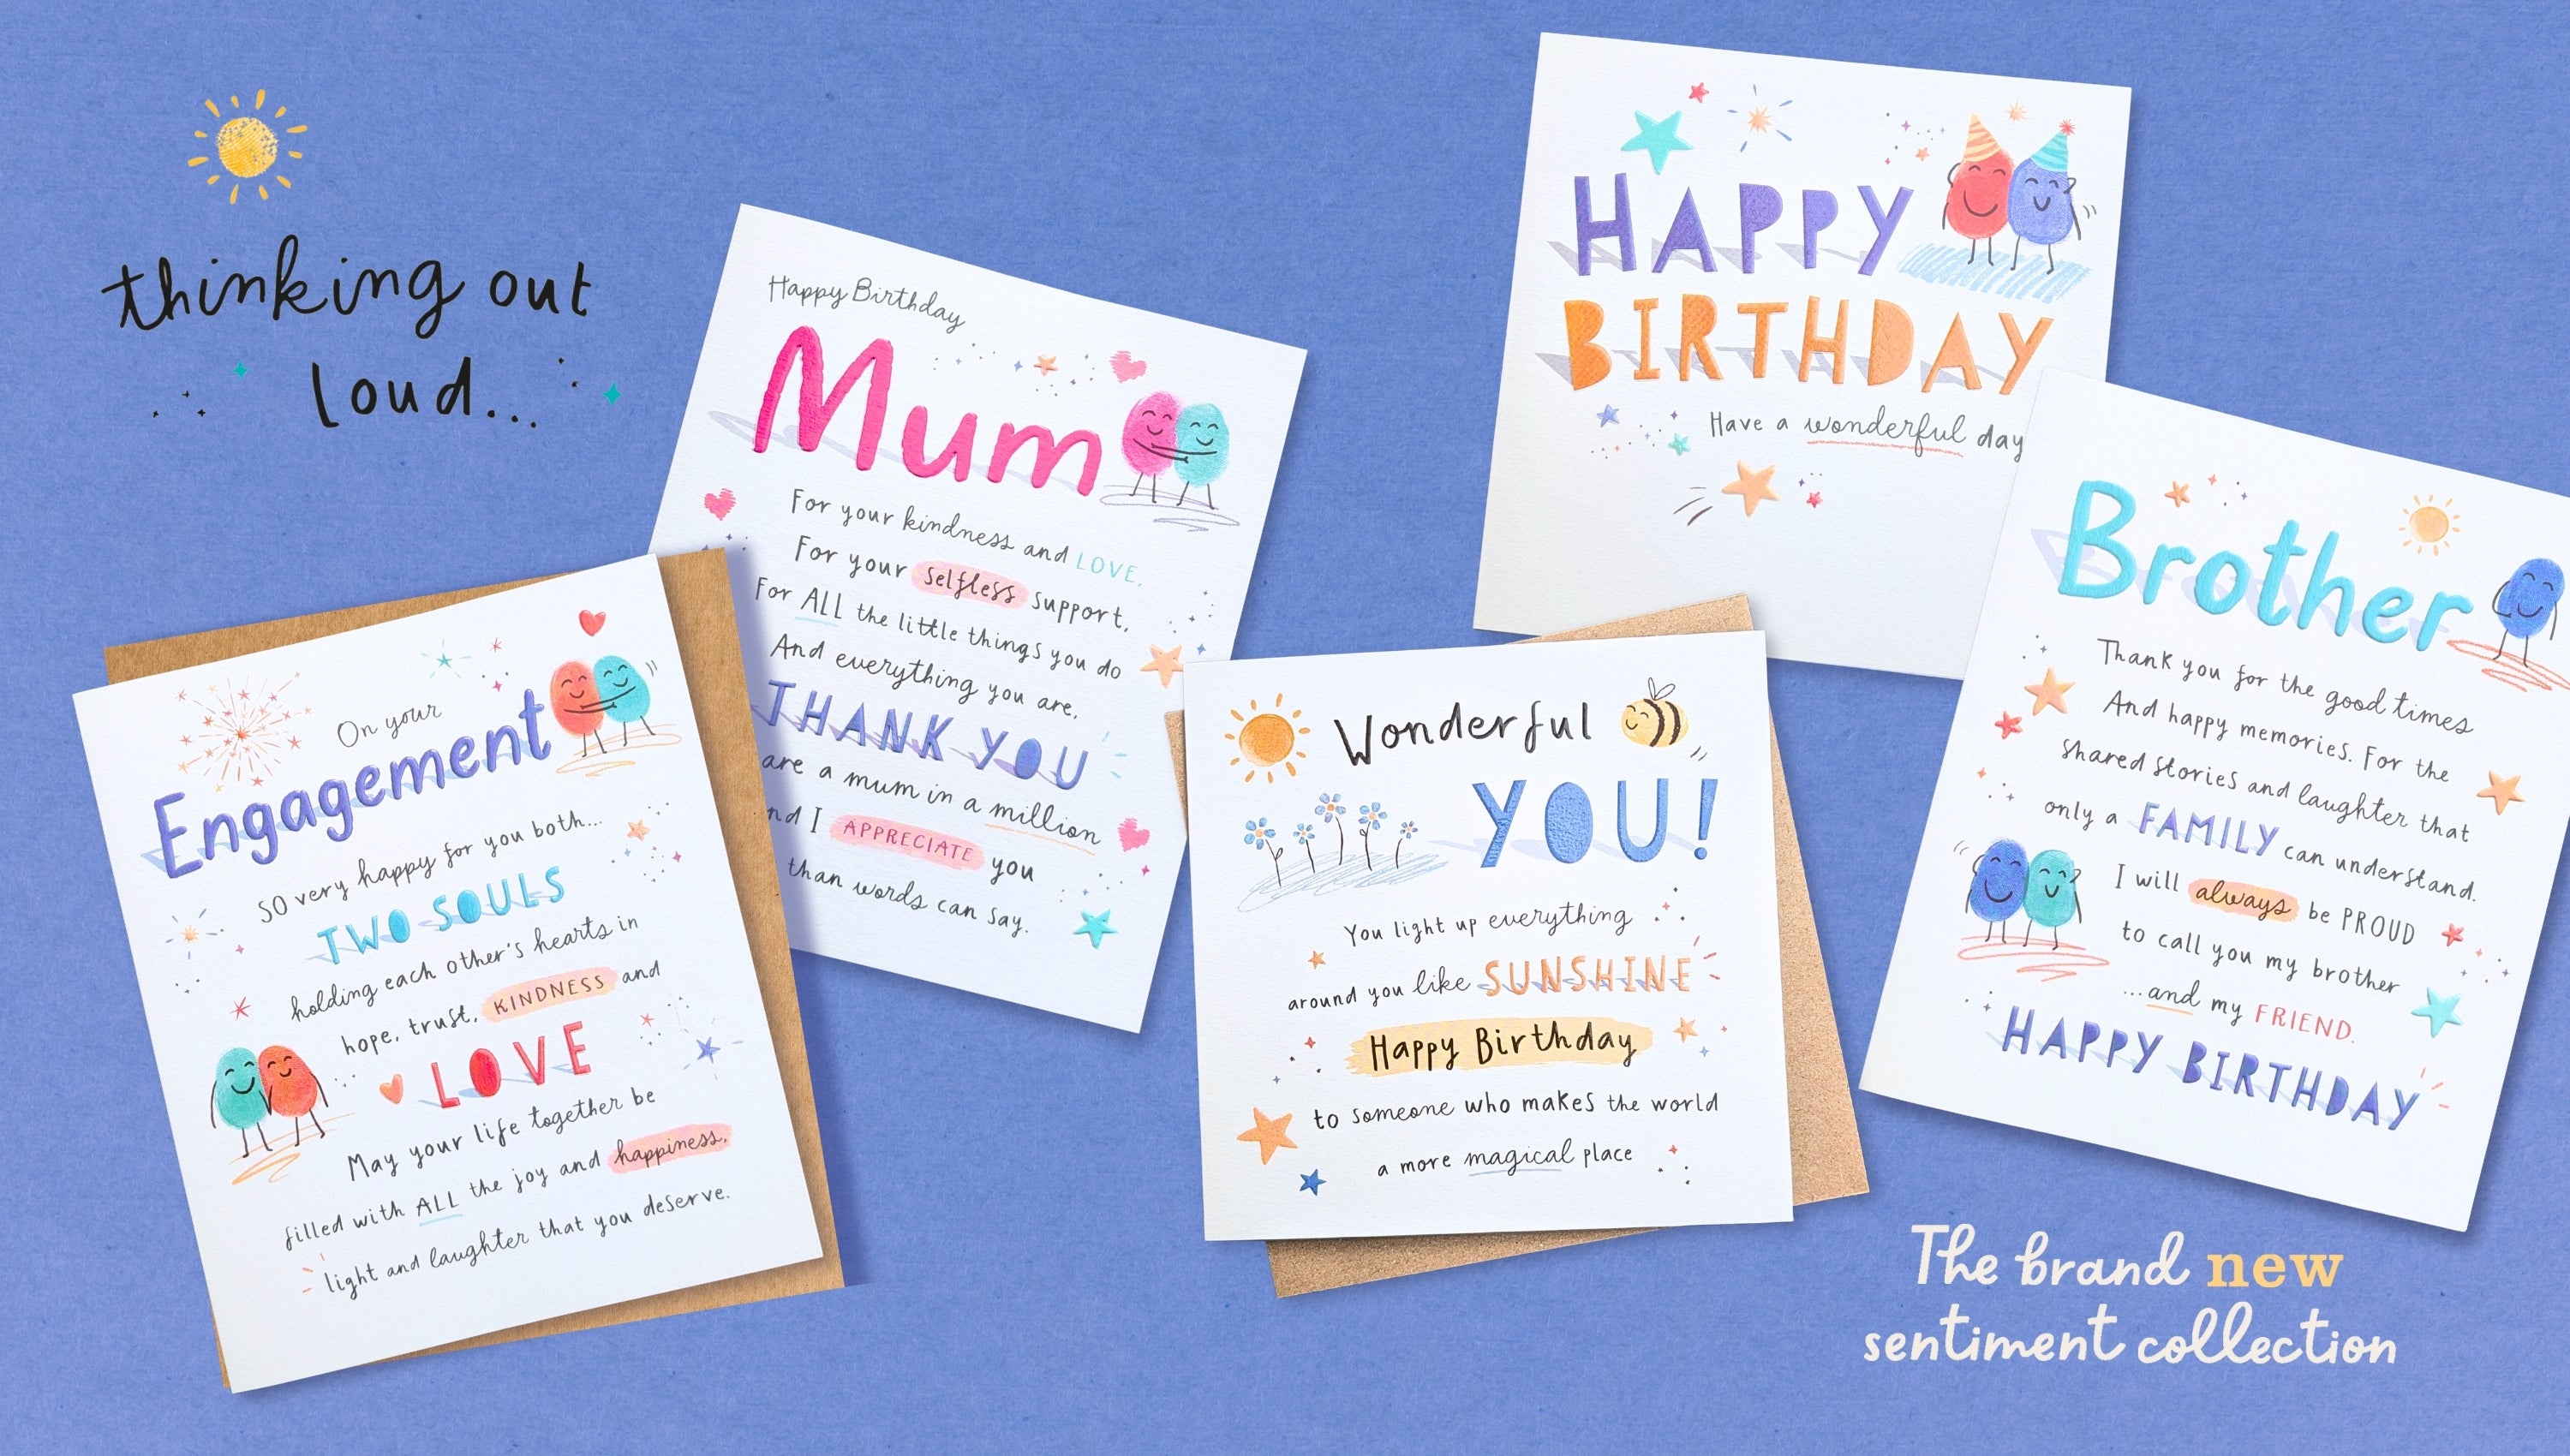 thinking out
loud...
Happy Birthday
Mum
For your kindness and LOVE.
For your selfless support,
For ALL the little things you do
And everything you are,
THANK YOU
are a mum in a million
I APPRECIATE you
than words can say.
On your
Engagement
so very happy for you both...
TWO SOULS
holding each other's hearts in
hope, trust, KINDNESS and
LOVE
May your life together be
filled with ALL the joy and happiness,
light and laughter that you deserve.
Wonderful
YOU!
You light up everything
around you like SUNSHINE
Happy Birthday
to someone who makes the world
a more magical place
HAPPY
BIRTHDAY
Have a wonderful day
Brother
Thank you for the good times
And happy memories. For the
shared stories and laughter that
only a FAMILY can understand.
I will always be PROUD
to call you my brother
...and my FRIEND.
HAPPY BIRTHDAY
The brand new
sentiment collection